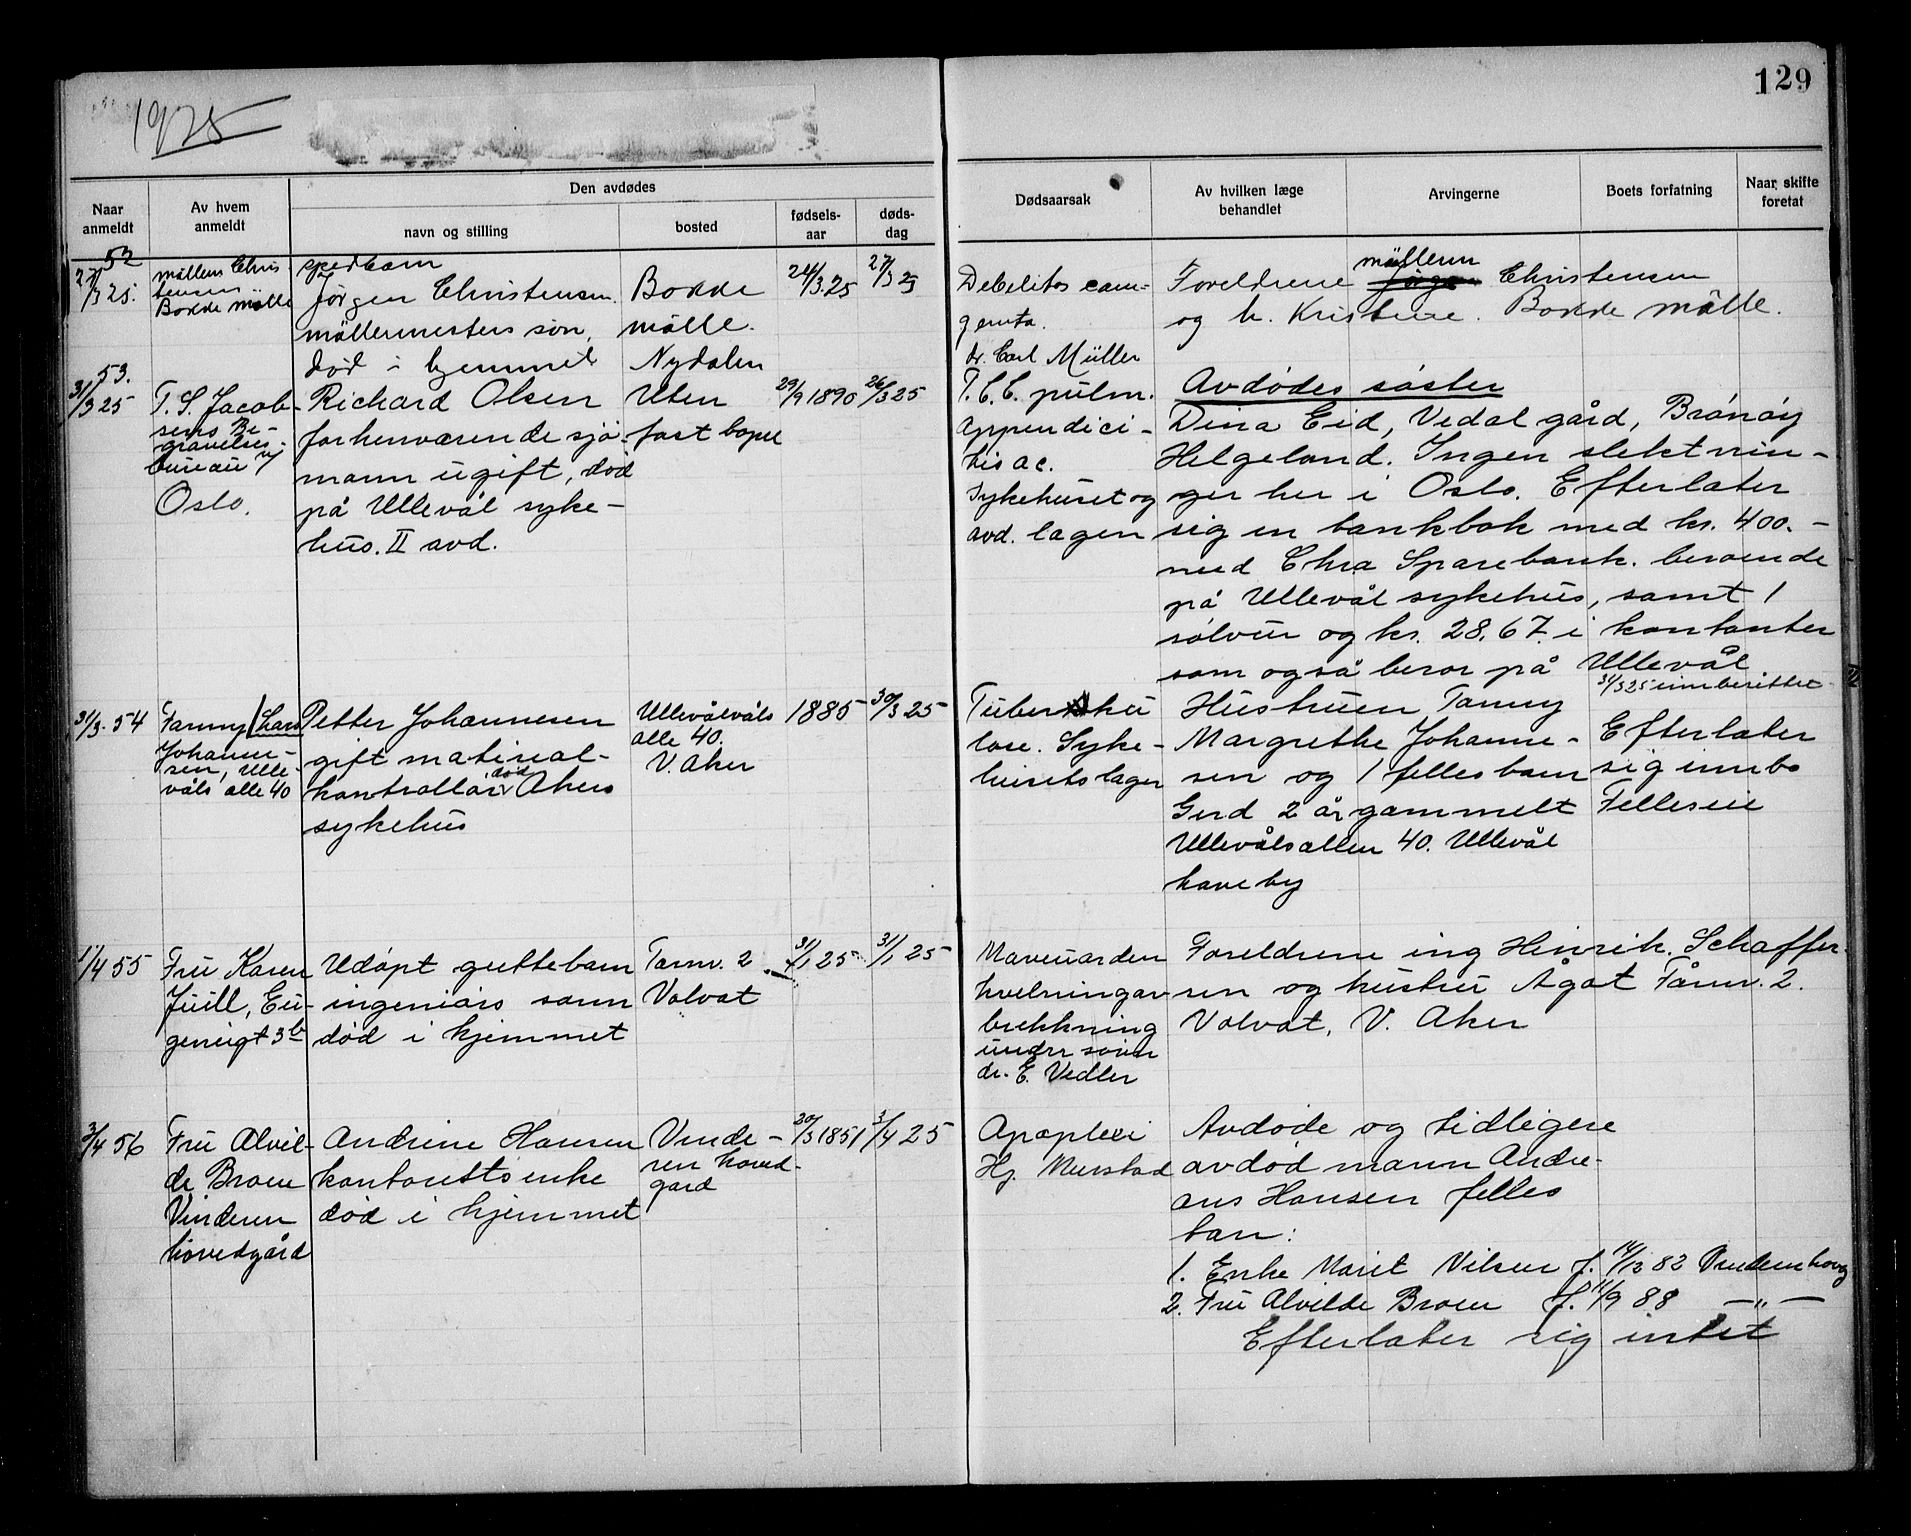 1925
129
Naar anmeldt
Av hvem anmeldt
Den avdødes
navn og stilling
bosted
fødsels-aar
døds-dag
Dødsaarsak
Av hvilken læge behandlet
Arvingerne
Boets forfatning
Naar skifte foretat
52
27/3 25.
möllens Chris
tensen
Bakke mölle
spedbarn
Jørgen Christensen
möllermesters søn,
död i hjemmet
Bakke
mölle.
Nydalen
24/3.25
27/3 25
Debilitas con-
genita.
dr. Carl Müller
Foreldrene mölleren Christensen
og h. Kristine. Bakke mölle.
53.
31/3 25
T. S. Jacob-
sens Be-
gravelses-
bureau
Oslo.
Richard Olsen
forhenværende sjø-
mann ugift, död
på Ullevål syke-
hus. II avd.
Uten
fast bopel
29/9 1890
26/3 25
T.B.C. pulm.
Appendici-
tis ac.
Sykehuset og
avd. lægen
Avdödes söster
Dina Eid, Vedal gård, Brönöy
Helgeland. Ingen slektnin-
ger her i Oslo. Efterlater
sig en bankbok med kr. 400.-
med Chra Sparebank. beroende
på Ullevål sykehus, samt 1
sölvur og kr. 28,67. i kontanter
som også beror på Ullevål
31/3 25 innberettet
31/3. 54
Fanny
Johanne-
sen, Ulle-
våls alle 40
Petter Johannesen
gift material-
kontrollör, död Akers
sykehus
Ullevålvåls
alle 40.
V. Aker
1885
30/3 25
Tuberku
lose. Syke-
husets læger
Hustruen Fanny
Margrethe Johanne-
sen og 1 felles barn
Gerd 2 år gammelt
Ullevålsalleen 40. Ullevål
haveby
Efterlater
sig innbo
Felleseie
1/4 55
Fru Karen
Juell, Eu-
geniigt 3b
Udöpt guttebarn
ingeniörs sønn
död i hjemmet
Tårnv. 2
Volvat
31/1 25
31/1 25
Navle
brekkning
under
dr. E. Vedler
Foreldrene ing Hinrik Schaffer-
sen og hustru Ågot Tårnv. 2.
Volvat, V. Aker
3/4 56
Fru Alvil-
de Broen
Vinderen
hovedgård
Andrine Hansen
kontorists enke
död i hjemmet
Vinde-
ren hoved-
gård
20/3 1851
3/4 25
Apoplexi
Hj. Meerstad
Avdøde og tidligere
avdöd mann Andre-
as Hansen felles
barn:
1. Enke Marit Nilsen f. 14/12 82 Vinderen hovg
2. Fru Alvilde Broen f. 11/9 88 —"—
Efterlater sig intet